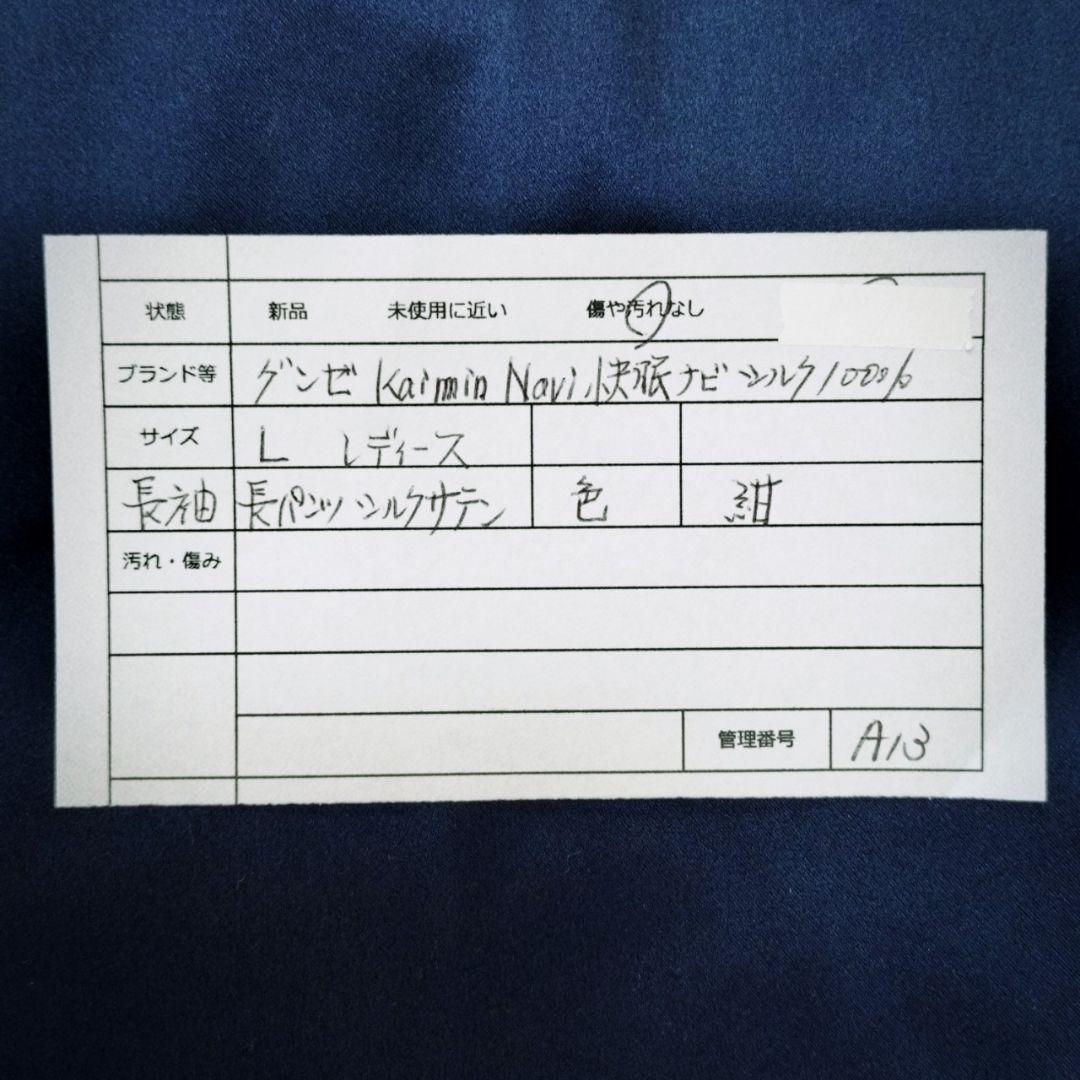 状態 新品 未使用に近い 傷や汚れなし
ブランド等 グンゼ Kaimin Navi 快眠ナビ シルク100%
サイズ L レディース
長袖 長パンツ シルクサテン 色 紺
汚れ・傷み
管理番号 A13